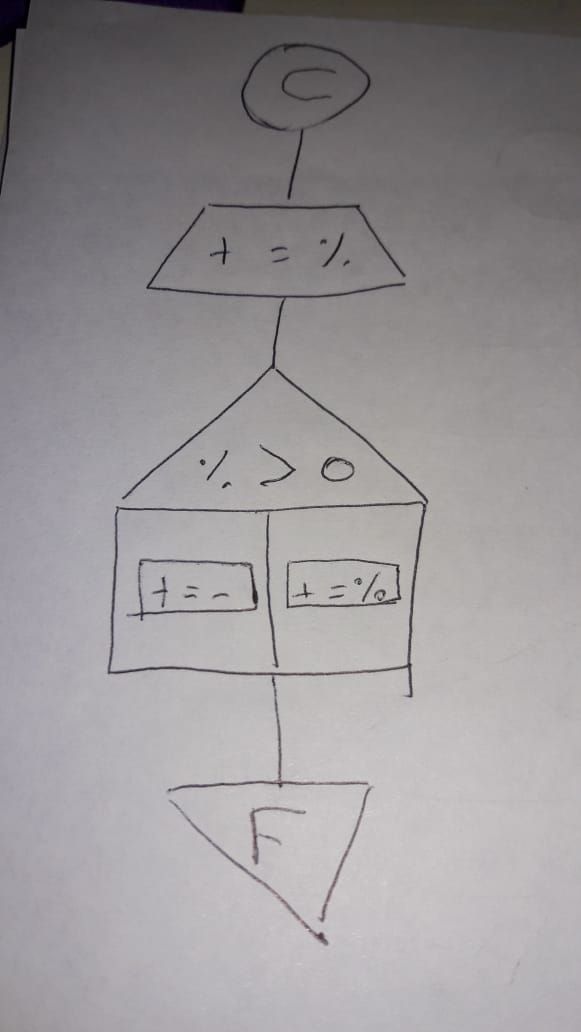 C
+ = %
% > 0
+ = - + = %
F